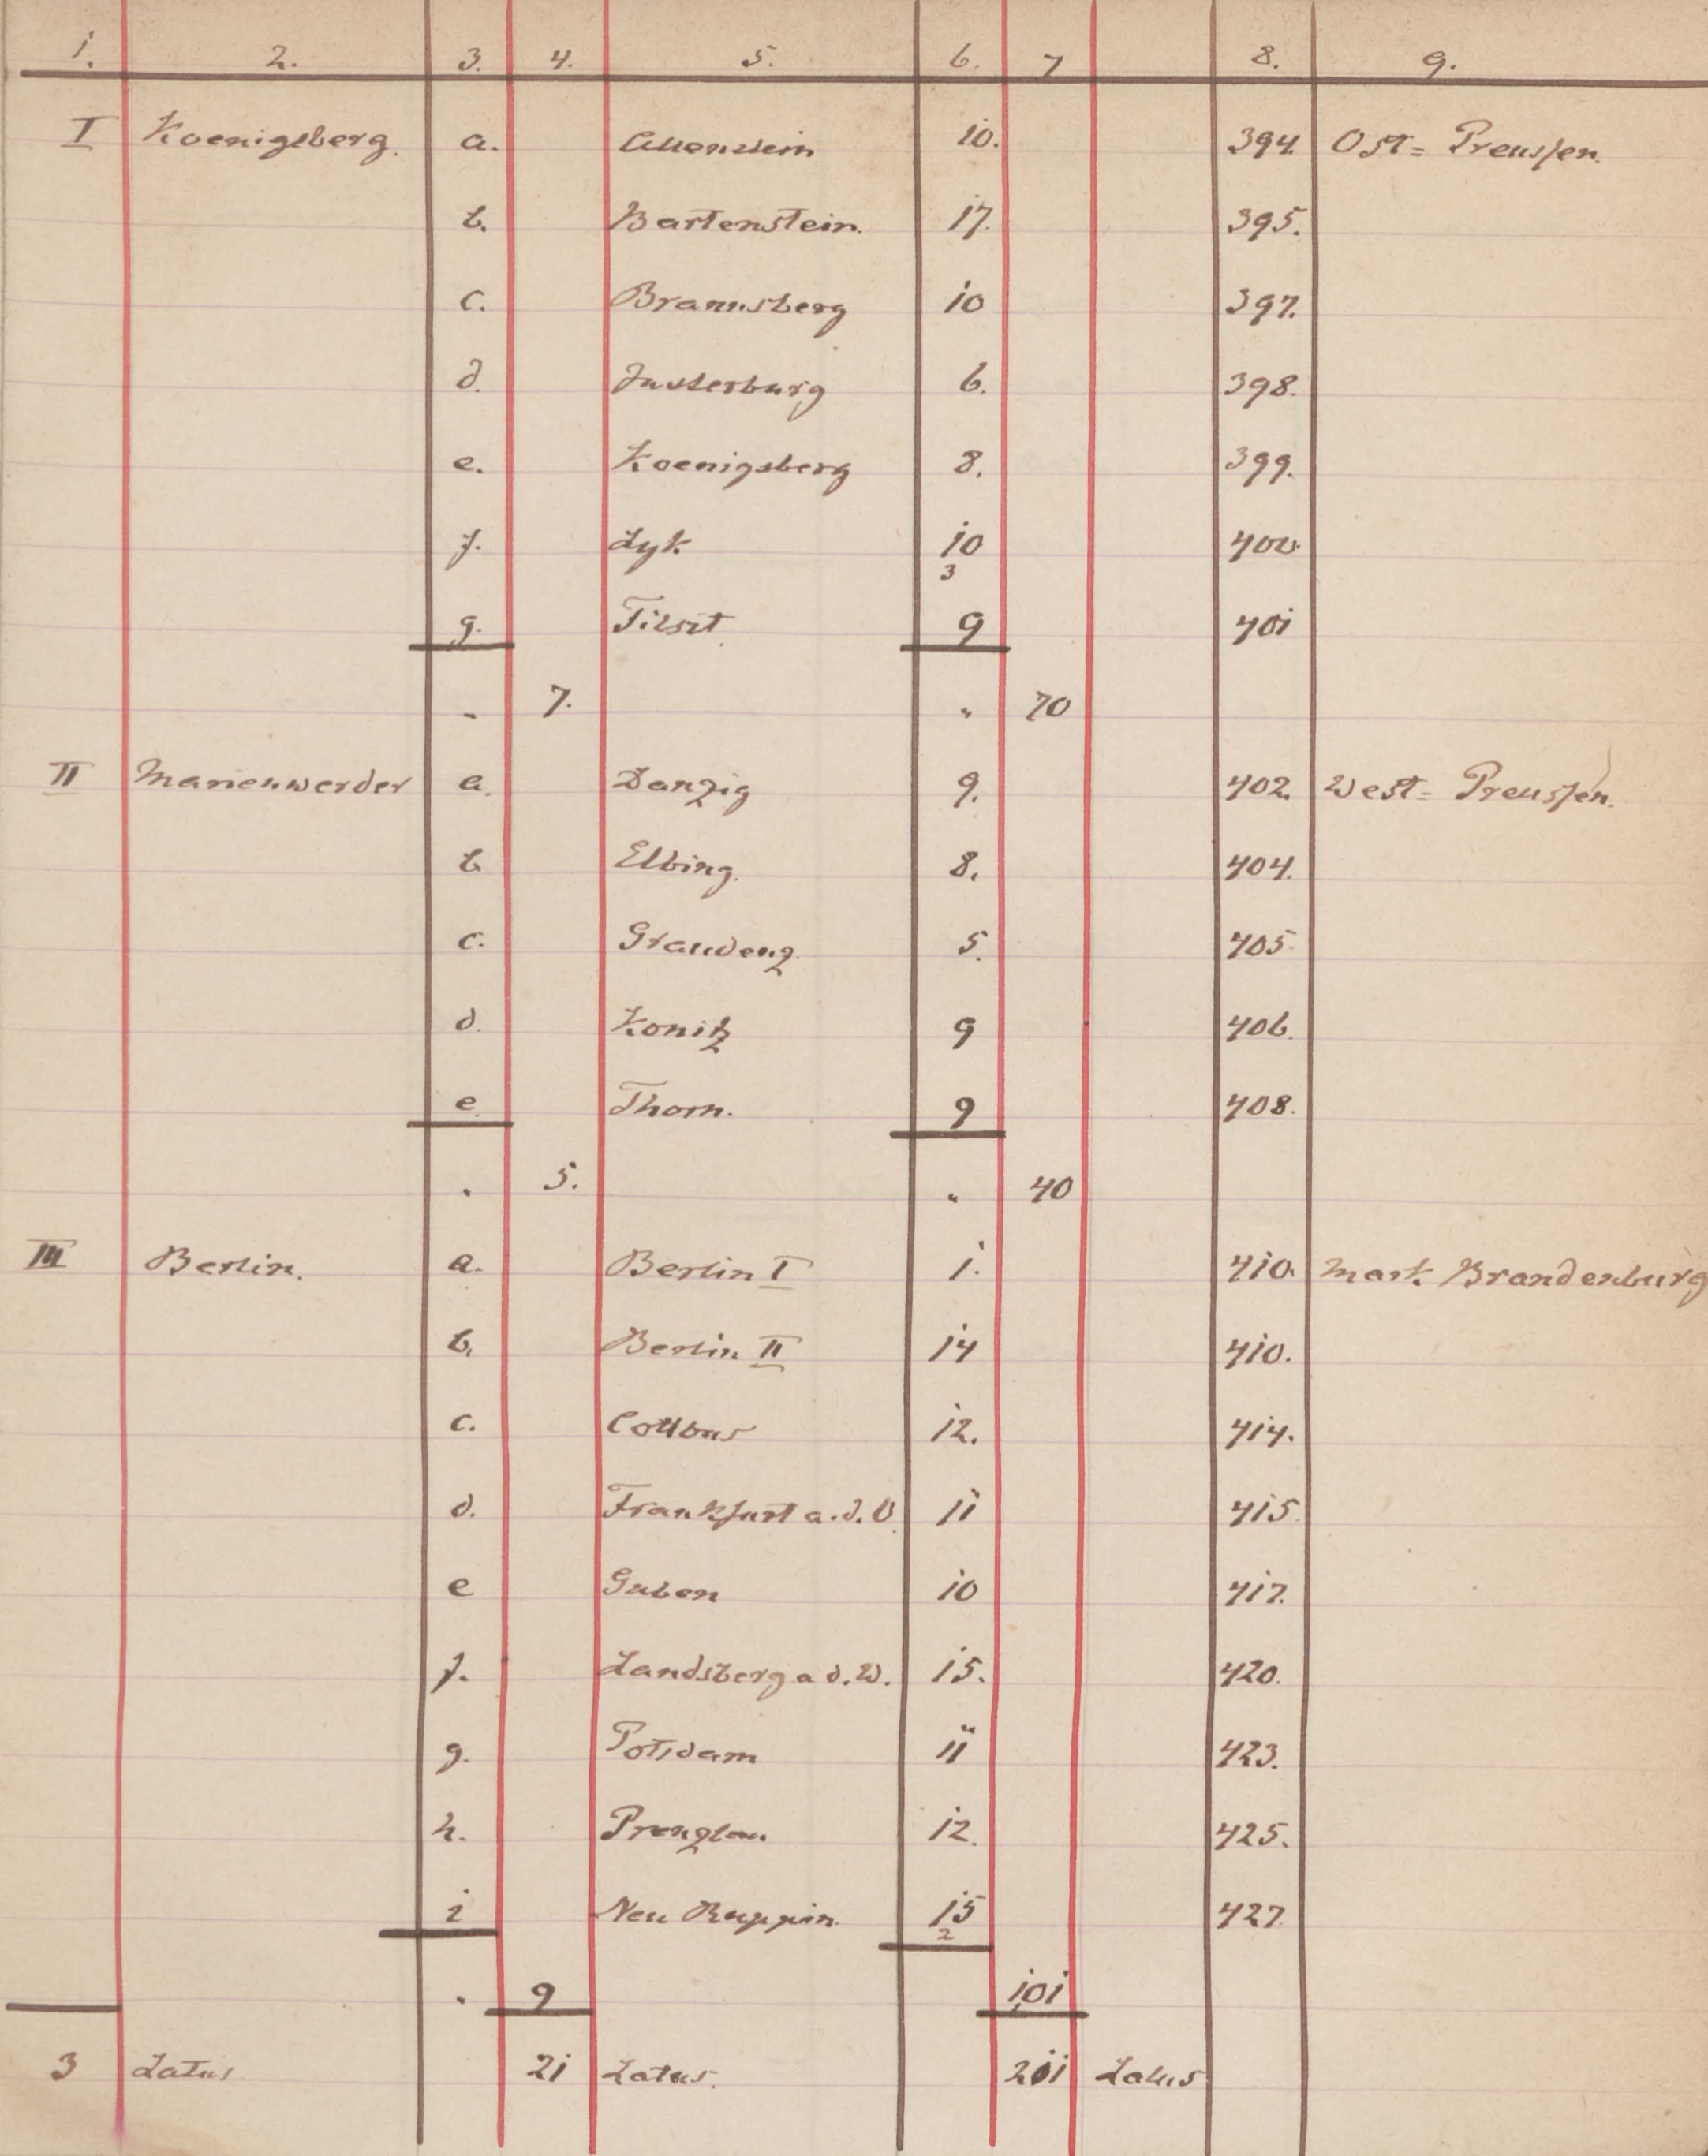 1. 2. 3. 4. 5. 6. 7 8. 9.
I Koenigsberg. a. Allenstein 10. 394. Ost= Preussen.
b. Bartenstein. 17. 395.
c. Braunsberg 10 397.
d. Insterburg 6. 398.
e. Koenigsberg 8. 399.
f. Lyk 10 400.
3
g. Tilsit. 9 401
" 7. " 70
II Marienwerder a. Danzig 9. 402. West= Preussen.
b Elbing. 8. 404.
c. Graudenz. 5. 405.
d. Konitz 9 406.
e Thorn. 9 408.
" 5. " 40
III Berlin. a. Berlin I 1. 410. Mark Brandenburg
b. Berlin II 14 410.
c. Cottbus 12. 414.
d. Frankfurt a.d.O. 11 415.
e Guben 10 417.
f. Landsberg a d.W. 15. 420.
g. Potsdam 11 423.
h. Prenzlau 12. 425.
i Neu Ruppin. 15 427.
2
" 9 101
3 Latus 21 Latus. 211 Latus